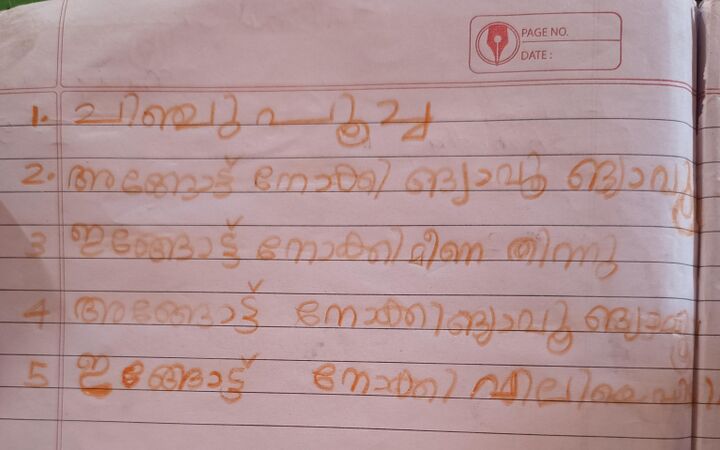 PAGE NO.
DATE :
1. ചിഞ്ചു പൂച്ച
2. അങ്ങോട്ട് നോക്കി ങ്യാവൂ ങ്യാവൂ
3 ഇങ്ങോട്ട് നോക്കി മീണ തിന്നു
4 അങ്ങോട്ട് നോക്കി ങ്യാവൂ
5 ഇങ്ങോട്ട് നോക്കി